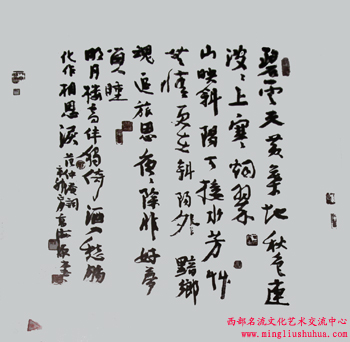 碧雲天黄葉地秋色連
波〻上寒烟翠
山映斜陽天接水芳草
無情更在斜陽外 黯鄉
魂追旅思夜〻除非好夢
人睡
明月樓高休獨倚酒入愁腸
化作相思淚 范仲淹詞
西部名流文化艺术交流中心
www.mingliushuhua.com